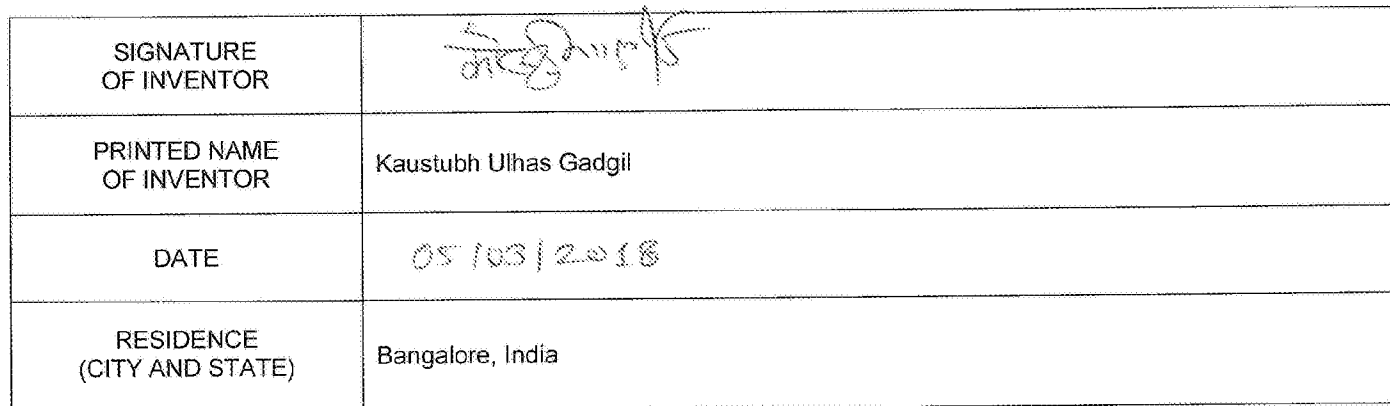 SIGNATURE
OF INVENTOR
PRINTED NAME
OF INVENTOR
Kaustubh Ulhas Gadgil
DATE
05/03/2018
RESIDENCE
(CITY AND STATE)
Bangalore, India